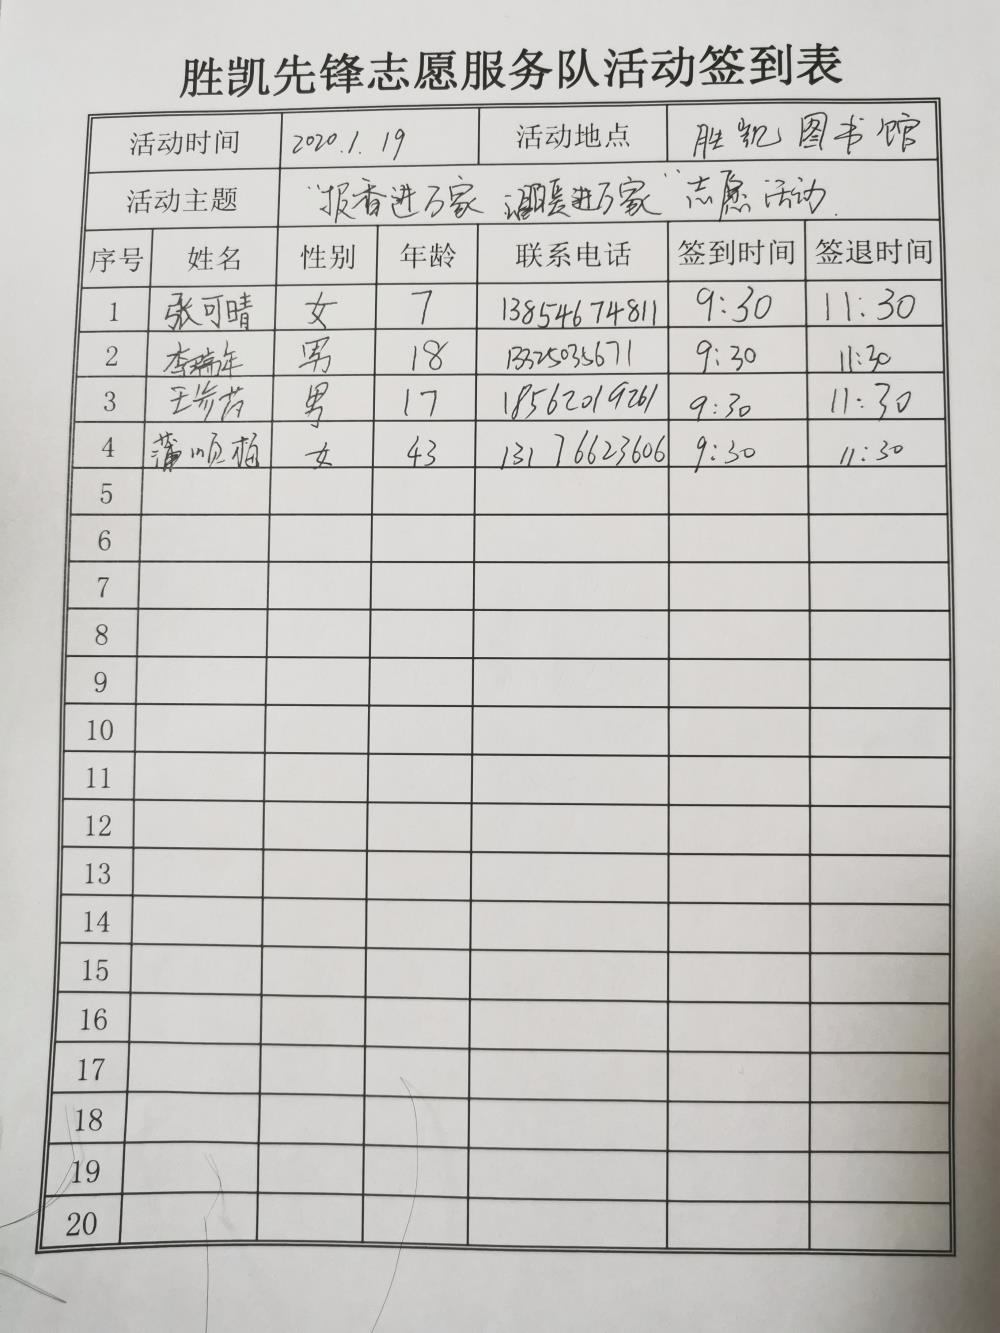 胜凯先锋志愿服务队活动签到表
活动时间 2020.1.19 活动地点 胜凯图书馆
活动主题 "报香进万家 温暖进万家"志愿活动.
序号 姓名 性别 年龄 联系电话 签到时间 签退时间
1 张可晴 女 7 13854674811 9:30 11:30
2 李瑞年 男 18 13325035671 9:30 11:30
3 男 17 18562019261 9:30 11:30
4 蒲顺梅 女 43 13176623606 9:30 11:30
5
6
7
8
9
10
11
12
13
14
15
16
17
18
19
20